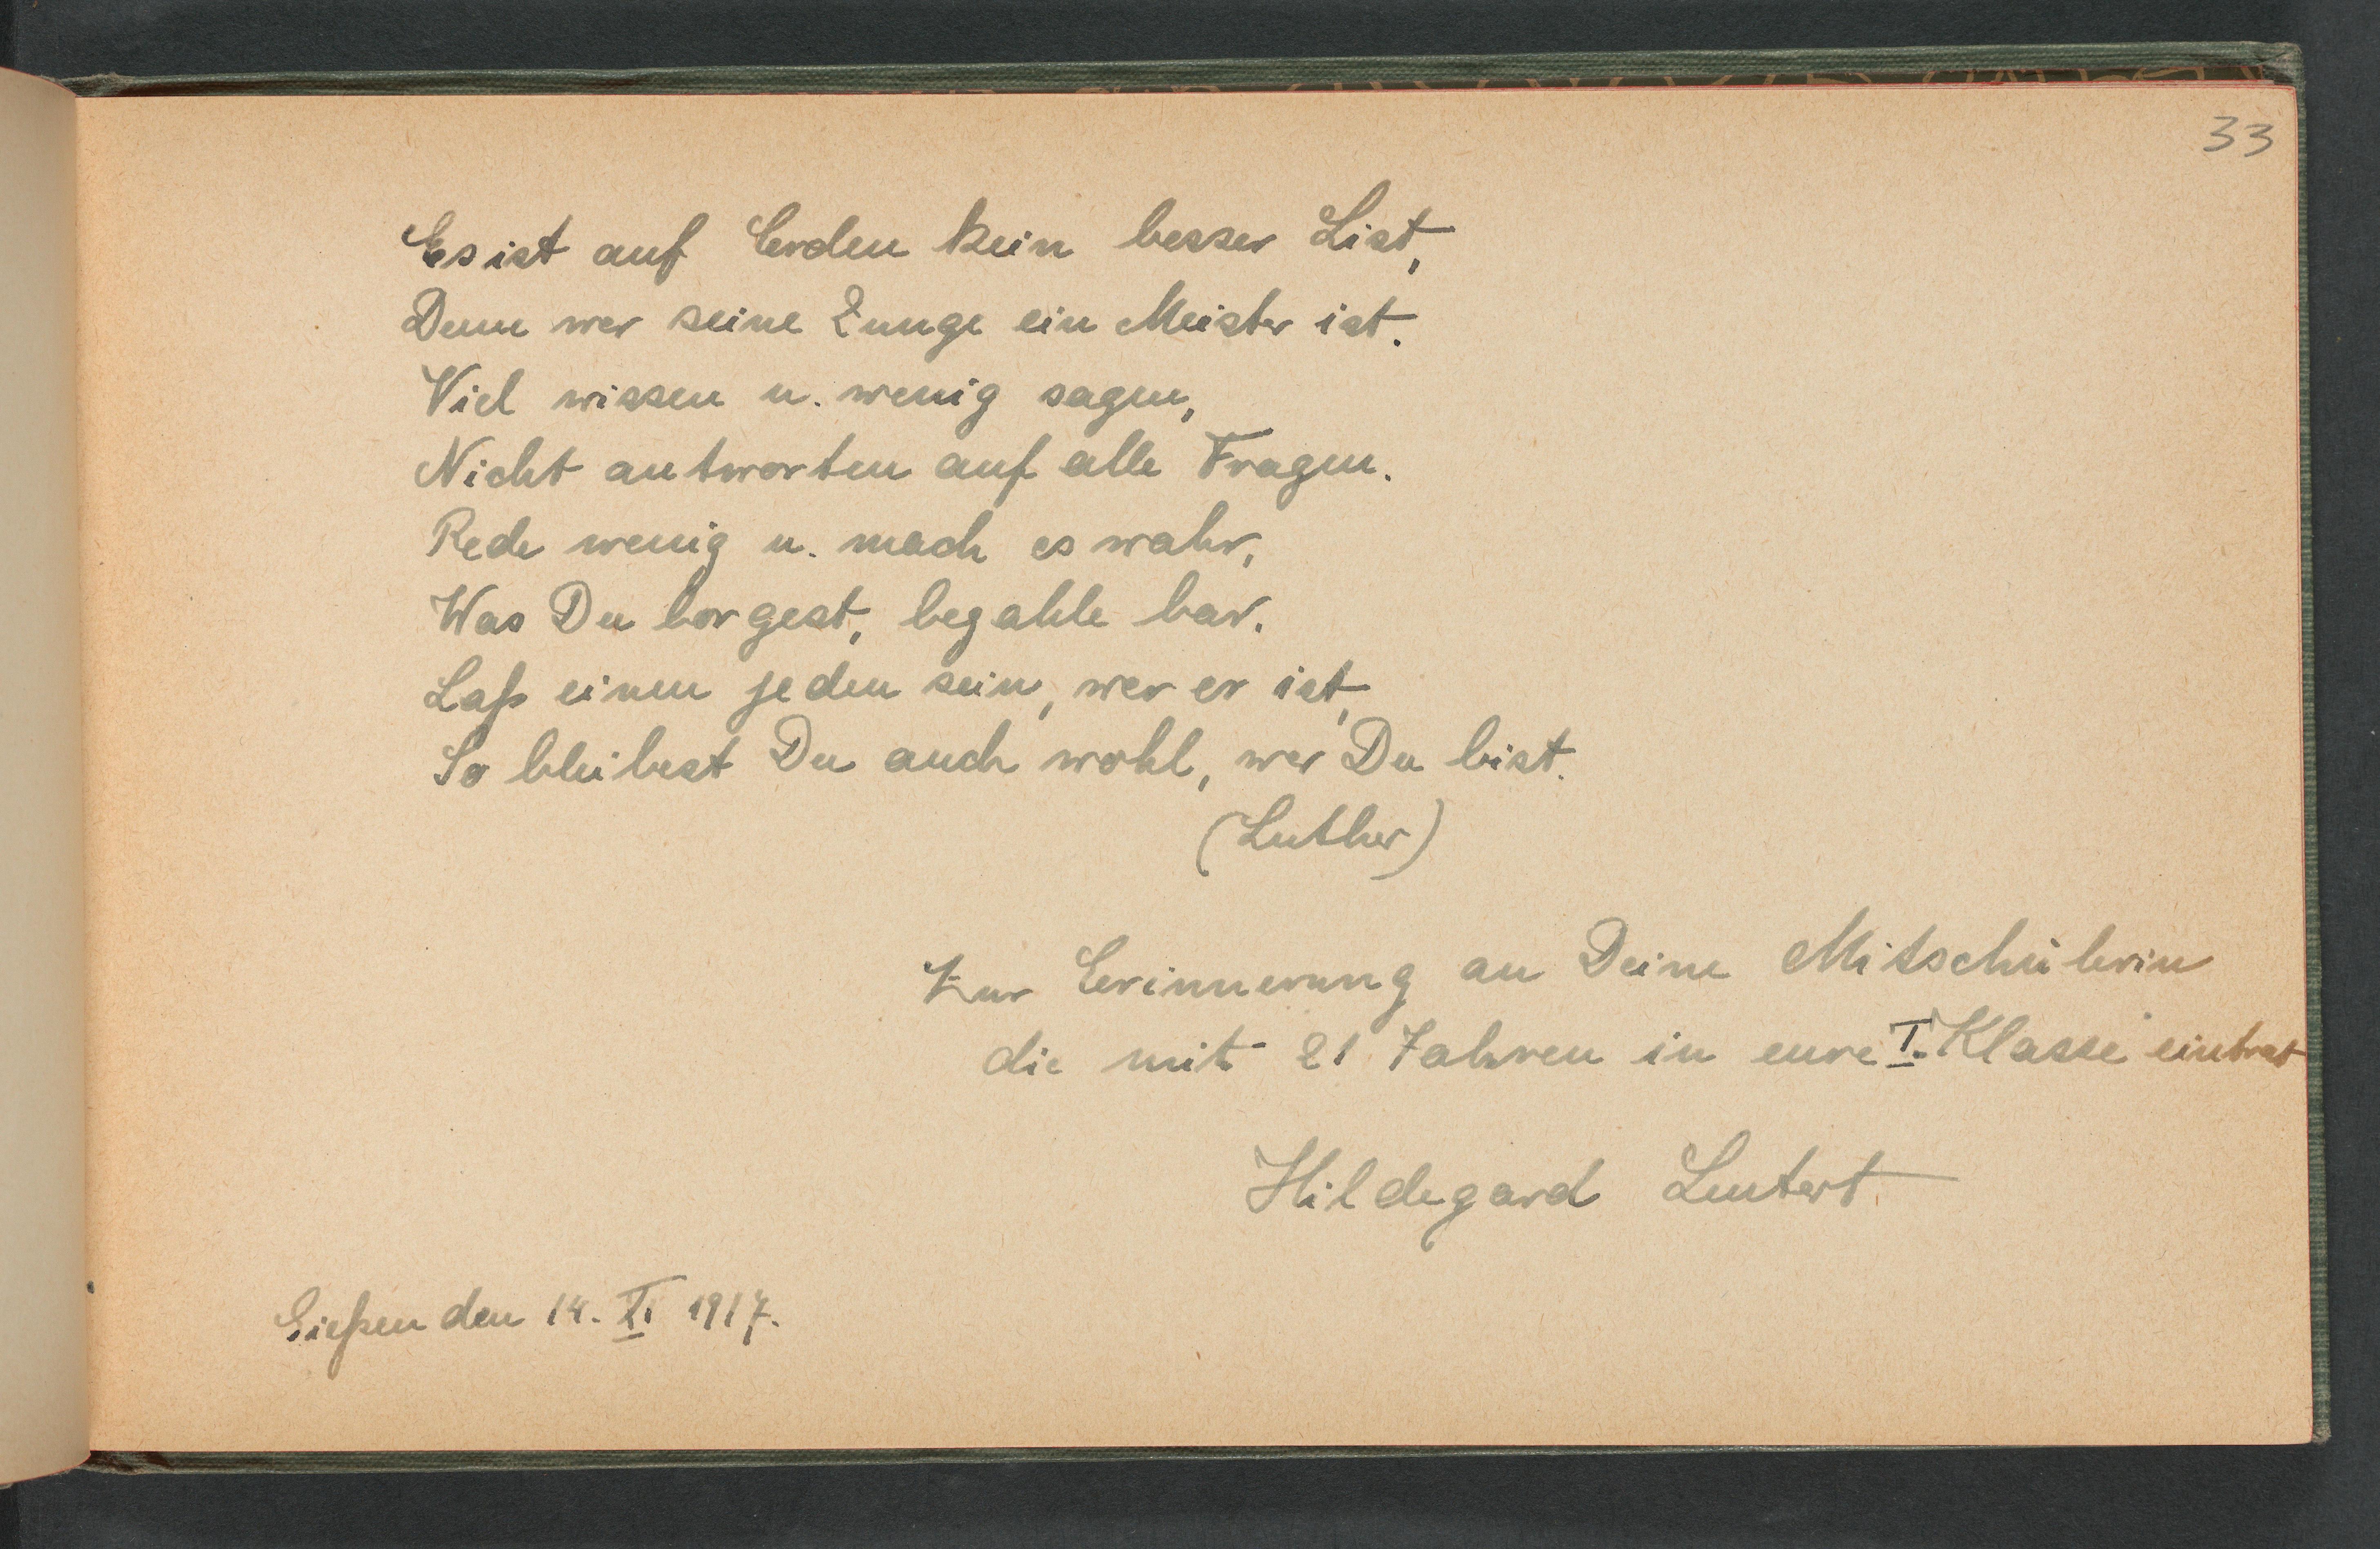 33
Es ist auf Erden kein besser List,
Denn wer seine Zunge ein Meister ist.
Viel wissen u. wenig sagen,
Nicht antworten auf alle Fragen.
Rede wenig u. mach es wahr,
Was Du borgest, bezahle bar.
Laß einen jeden sein, wer er ist,
So bleibest Du auch wohl, wer Du bist.
(Luther)
Zur Erinnerung an Deine Mitschülerin
die mit 21 Jahren in eure I. Klasse eintrat
Hildegard Leutert
Gießen den 14. XI. 1917.